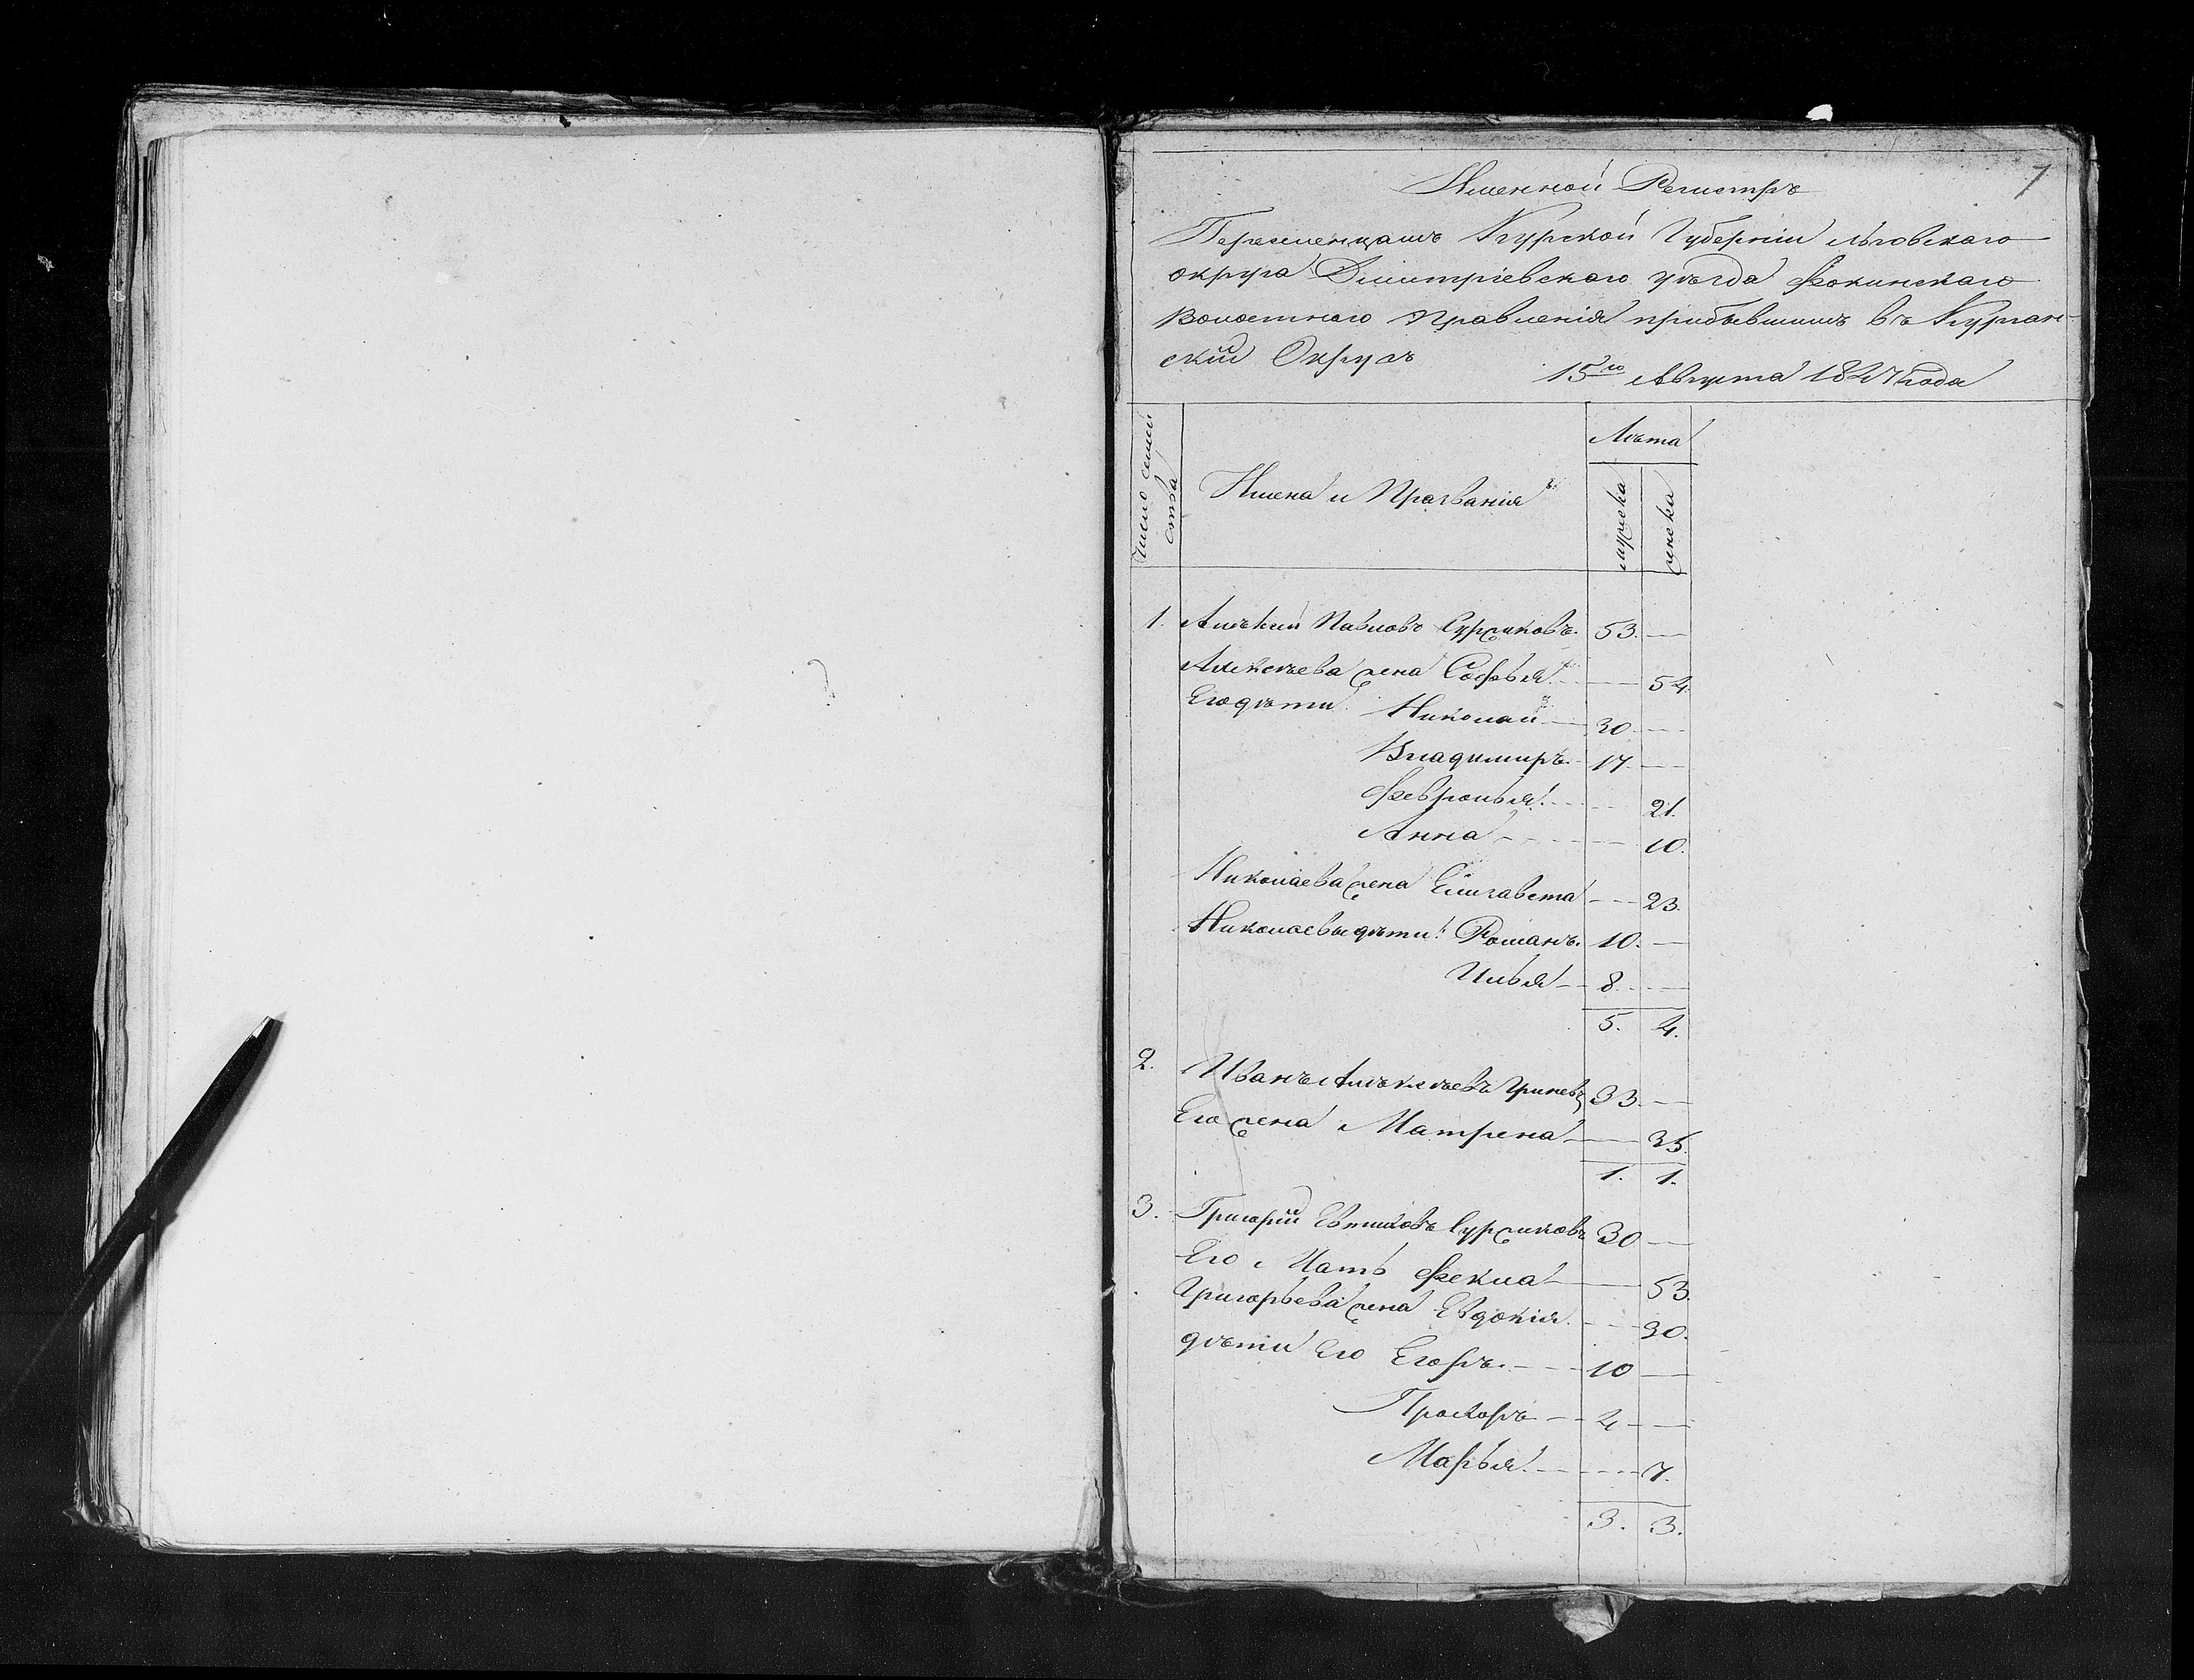 7
Именной Регистръ
Переселенцамъ Курской Губерніи Льговскаго
округа Дмитріевскаго уѣзда Фокинскаго
Волостнаго Правленія прибывшимъ въ Курган-
скій Округъ
15го Августа 1847 года
Число семей
ства
Имена и Прозванія
Лѣта
мужска
женска
1. Алѣксій Павловъ Суржиковъ. 53. —
Алексѣева жена Софья. — 54.
Его дѣти: Николай — 30. —
Владимиръ. 17. —
Февронья. — 21.
Анна — 10.
Николаева жена Елизавета — 23.
Николаевы дѣти: Романъ. 10. —
Илья — 8. —
5. 4.
2. Иванъ Алѣксѣевъ 33. —
Его жена Матрена — 35.
1. 1.
3. Григорій Суржиковъ 30 —
Его Мать Фекла — 53.
Григорьева жена Евдокія. — 30.
дѣти Его Егоръ. — 10 —
Прохоръ — 4 —
Марья. — 7.
3. 3.